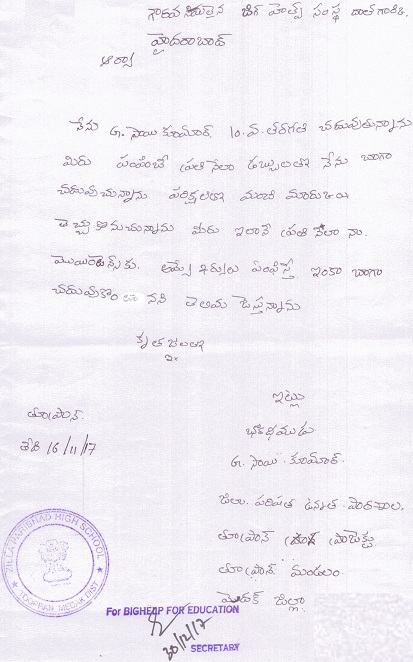 గౌరవనియులైన బిగ్ హెల్ప్ సంస్థ
హైదరాబాద్
ఆర్యా
నేను G. సాయి కుమార్ 10.వ. తరగతి చదువుతున్నాను
మిరు పంపించే ప్రతి నెలా డబ్బులతొ నేను బాగా
చదువుచున్నాను పరిక్షలలొ మంచి మారుకులు
తెచ్చుకొనుచున్నాను మీరు ఇలానే ప్రతి నేలా నా.
పంపిస్తే ఇంకా బాగా
చదువుకొం టానని తెలియ చేస్తున్నాను
కృతజ్ఞతలతొ
ఇట్లు
తూప్రాన్.
తేది 16/11/17
G. సాయి. కుమార్.
జిలు పరిషత ఉన్నత పాఠశాల.
తూప్రాన్
తూప్రాన్ మండలం.
మెదక్ జిల్లా
ZILLA PARISHAD HIGH SCHOOL
TOOPRAN MEDAK DIST
For BIGHELP FOR EDUCATION
30/12/17
SECRETARY